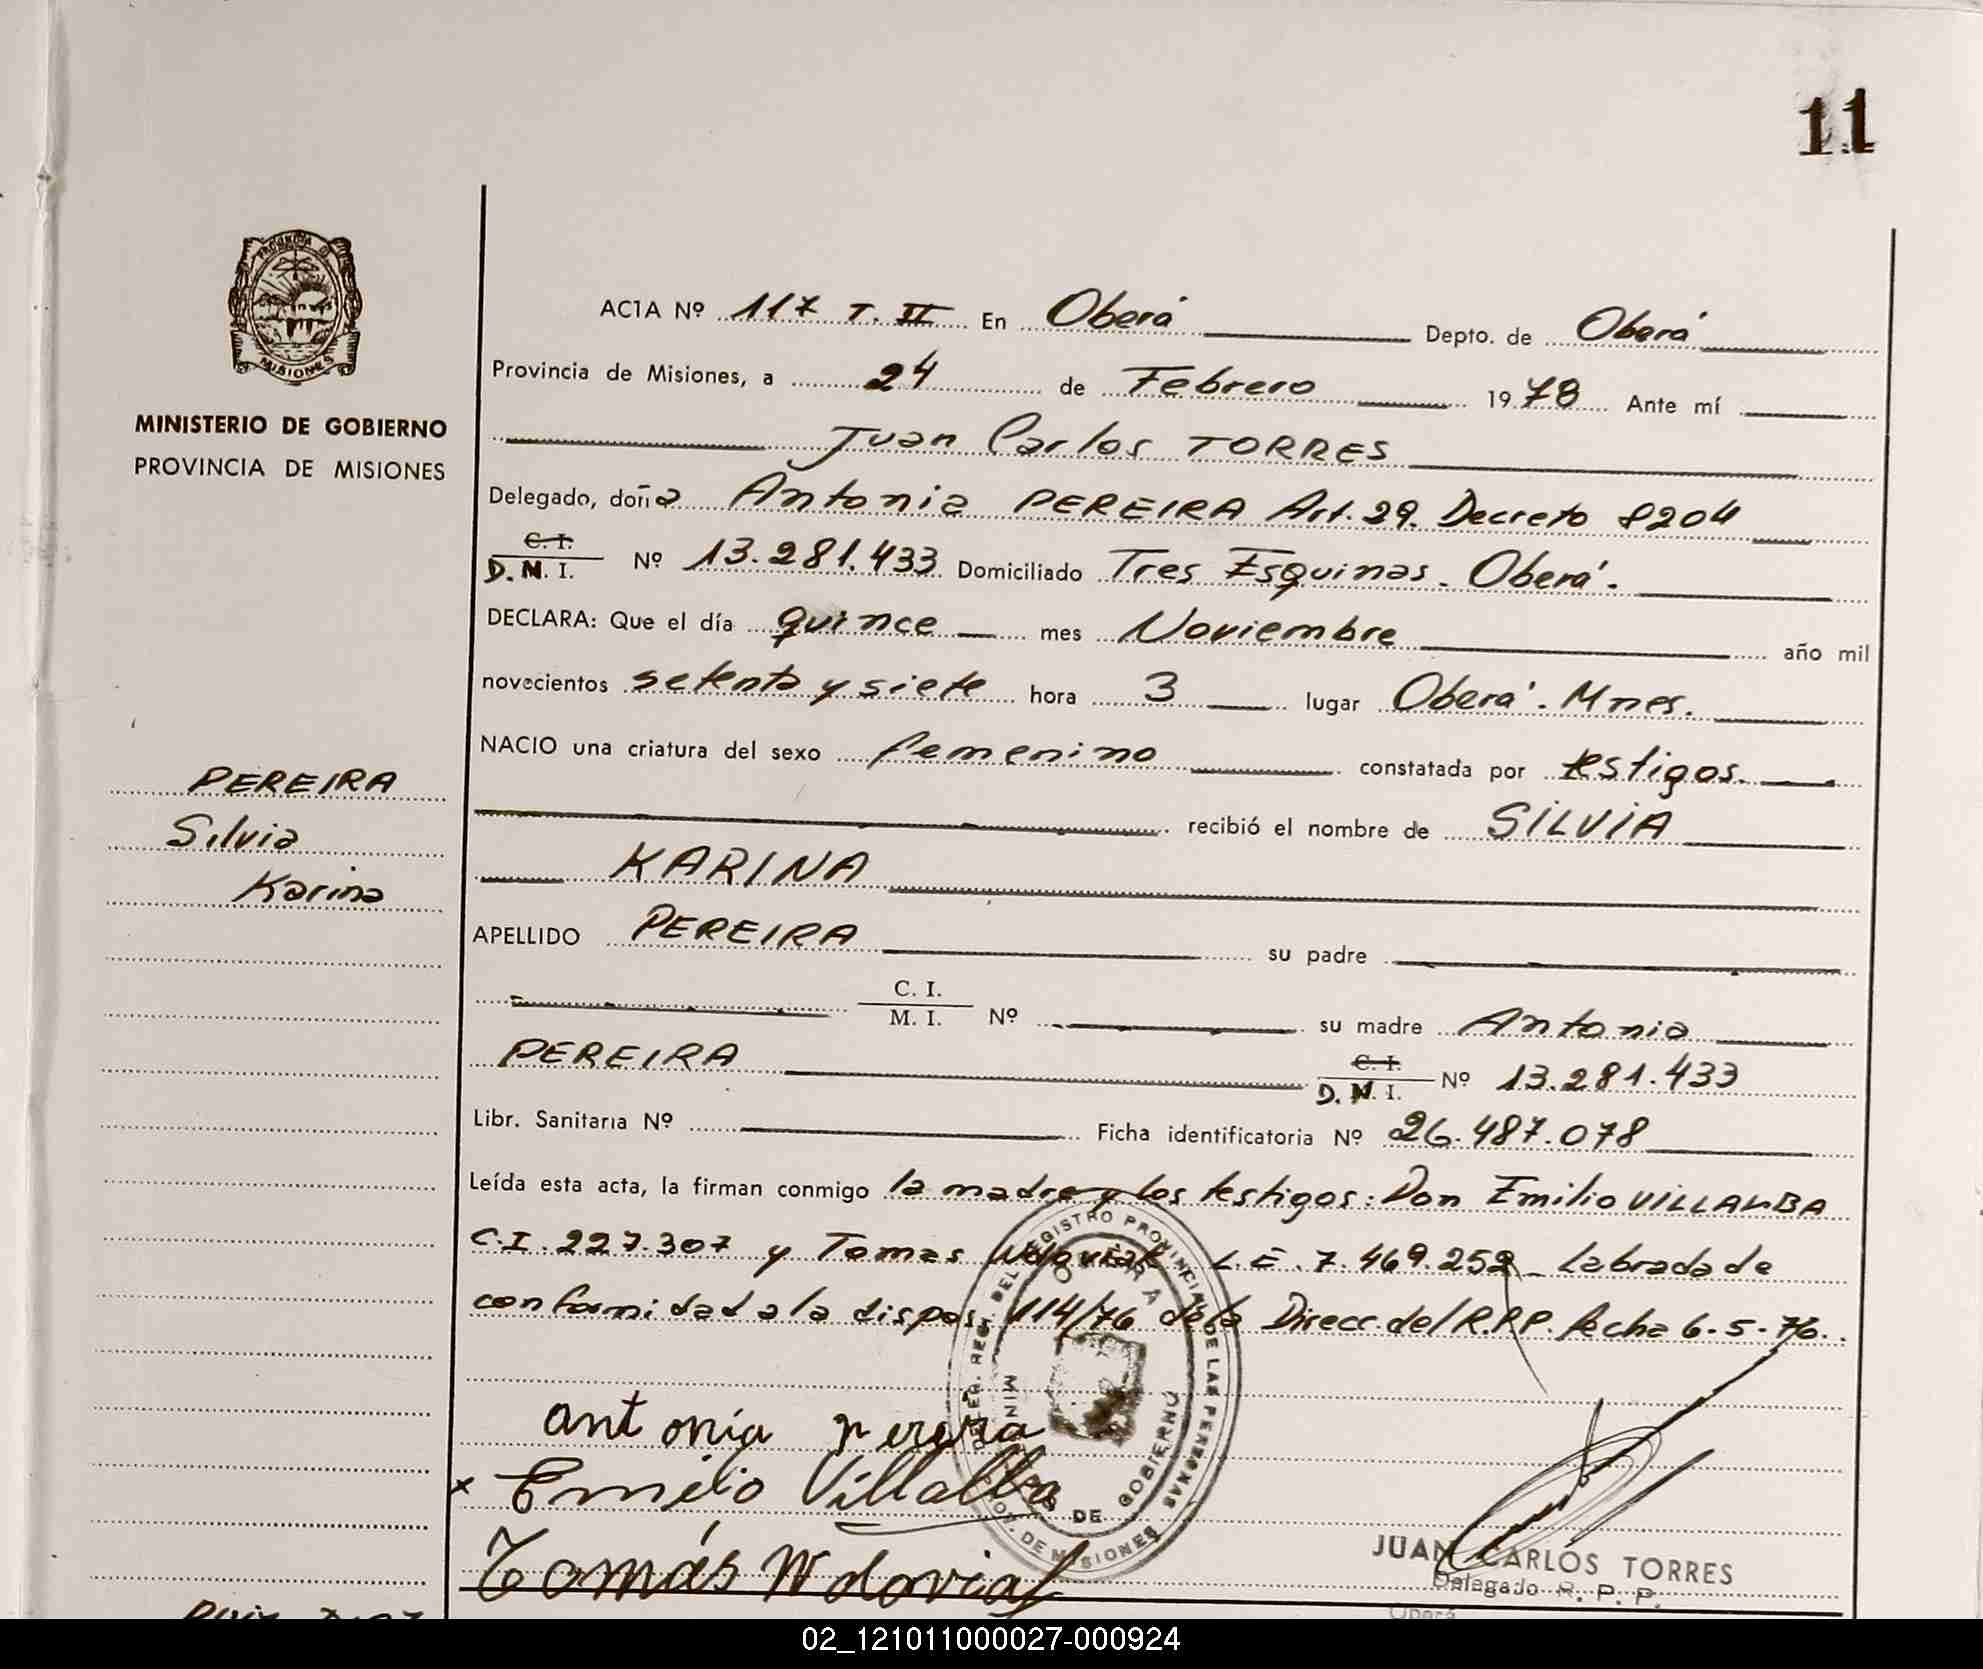 11
PROVINCIA DE
MISIONES
MINISTERIO DE GOBIERNO
PROVINCIA DE MISIONES
PEREIRA
Silvia
Karina
ACTA Nº 117 T. II En Oberá Depto. de Oberá
Provincia de Misiones, a 24 de Febrero 1978 Ante mí
Juan Carlos TORRES
Delegado, doña Antonia PEREIRA Art. 29. Decreto 8204
C. I.
D.N. I. Nº 13.281.433 Domiciliado Tres Esquinas. Oberá.
DECLARA: Que el día quince mes Noviembre año mil
novecientos setenta y siete hora 3 lugar Oberá. Mnes.
NACIO una criatura del sexo femenino constatada por testigos.
recibió el nombre de SILVIA
KARINA
APELLIDO PEREIRA su padre
C. I.
M. I. Nº su madre Antonia
PEREIRA C. I.
D.N. I. Nº 13.281.433
Libr. Sanitaria Nº Ficha identificatoria Nº 26.487.078
Leída esta acta, la firman conmigo la madre y los testigos: Don Emilio VILLALBA
C.I. 227.307 y Tomas Wdoviak L.E. 7.469.252 Labrada de
conformidad a la dispos. 114/76 de la Direcc. del R.P.P. fecha 6-5-76.
antonia perera
x Emilio Villalba
Tomás Wdoviak
REGISTRO PROVINCIAL DE LAS PERSONAS
OBERA
DE GOBIERNO
DE MISIONES
JUAN CARLOS TORRES
Delegado R. P. P.
Oberá
02_121011000027-000924